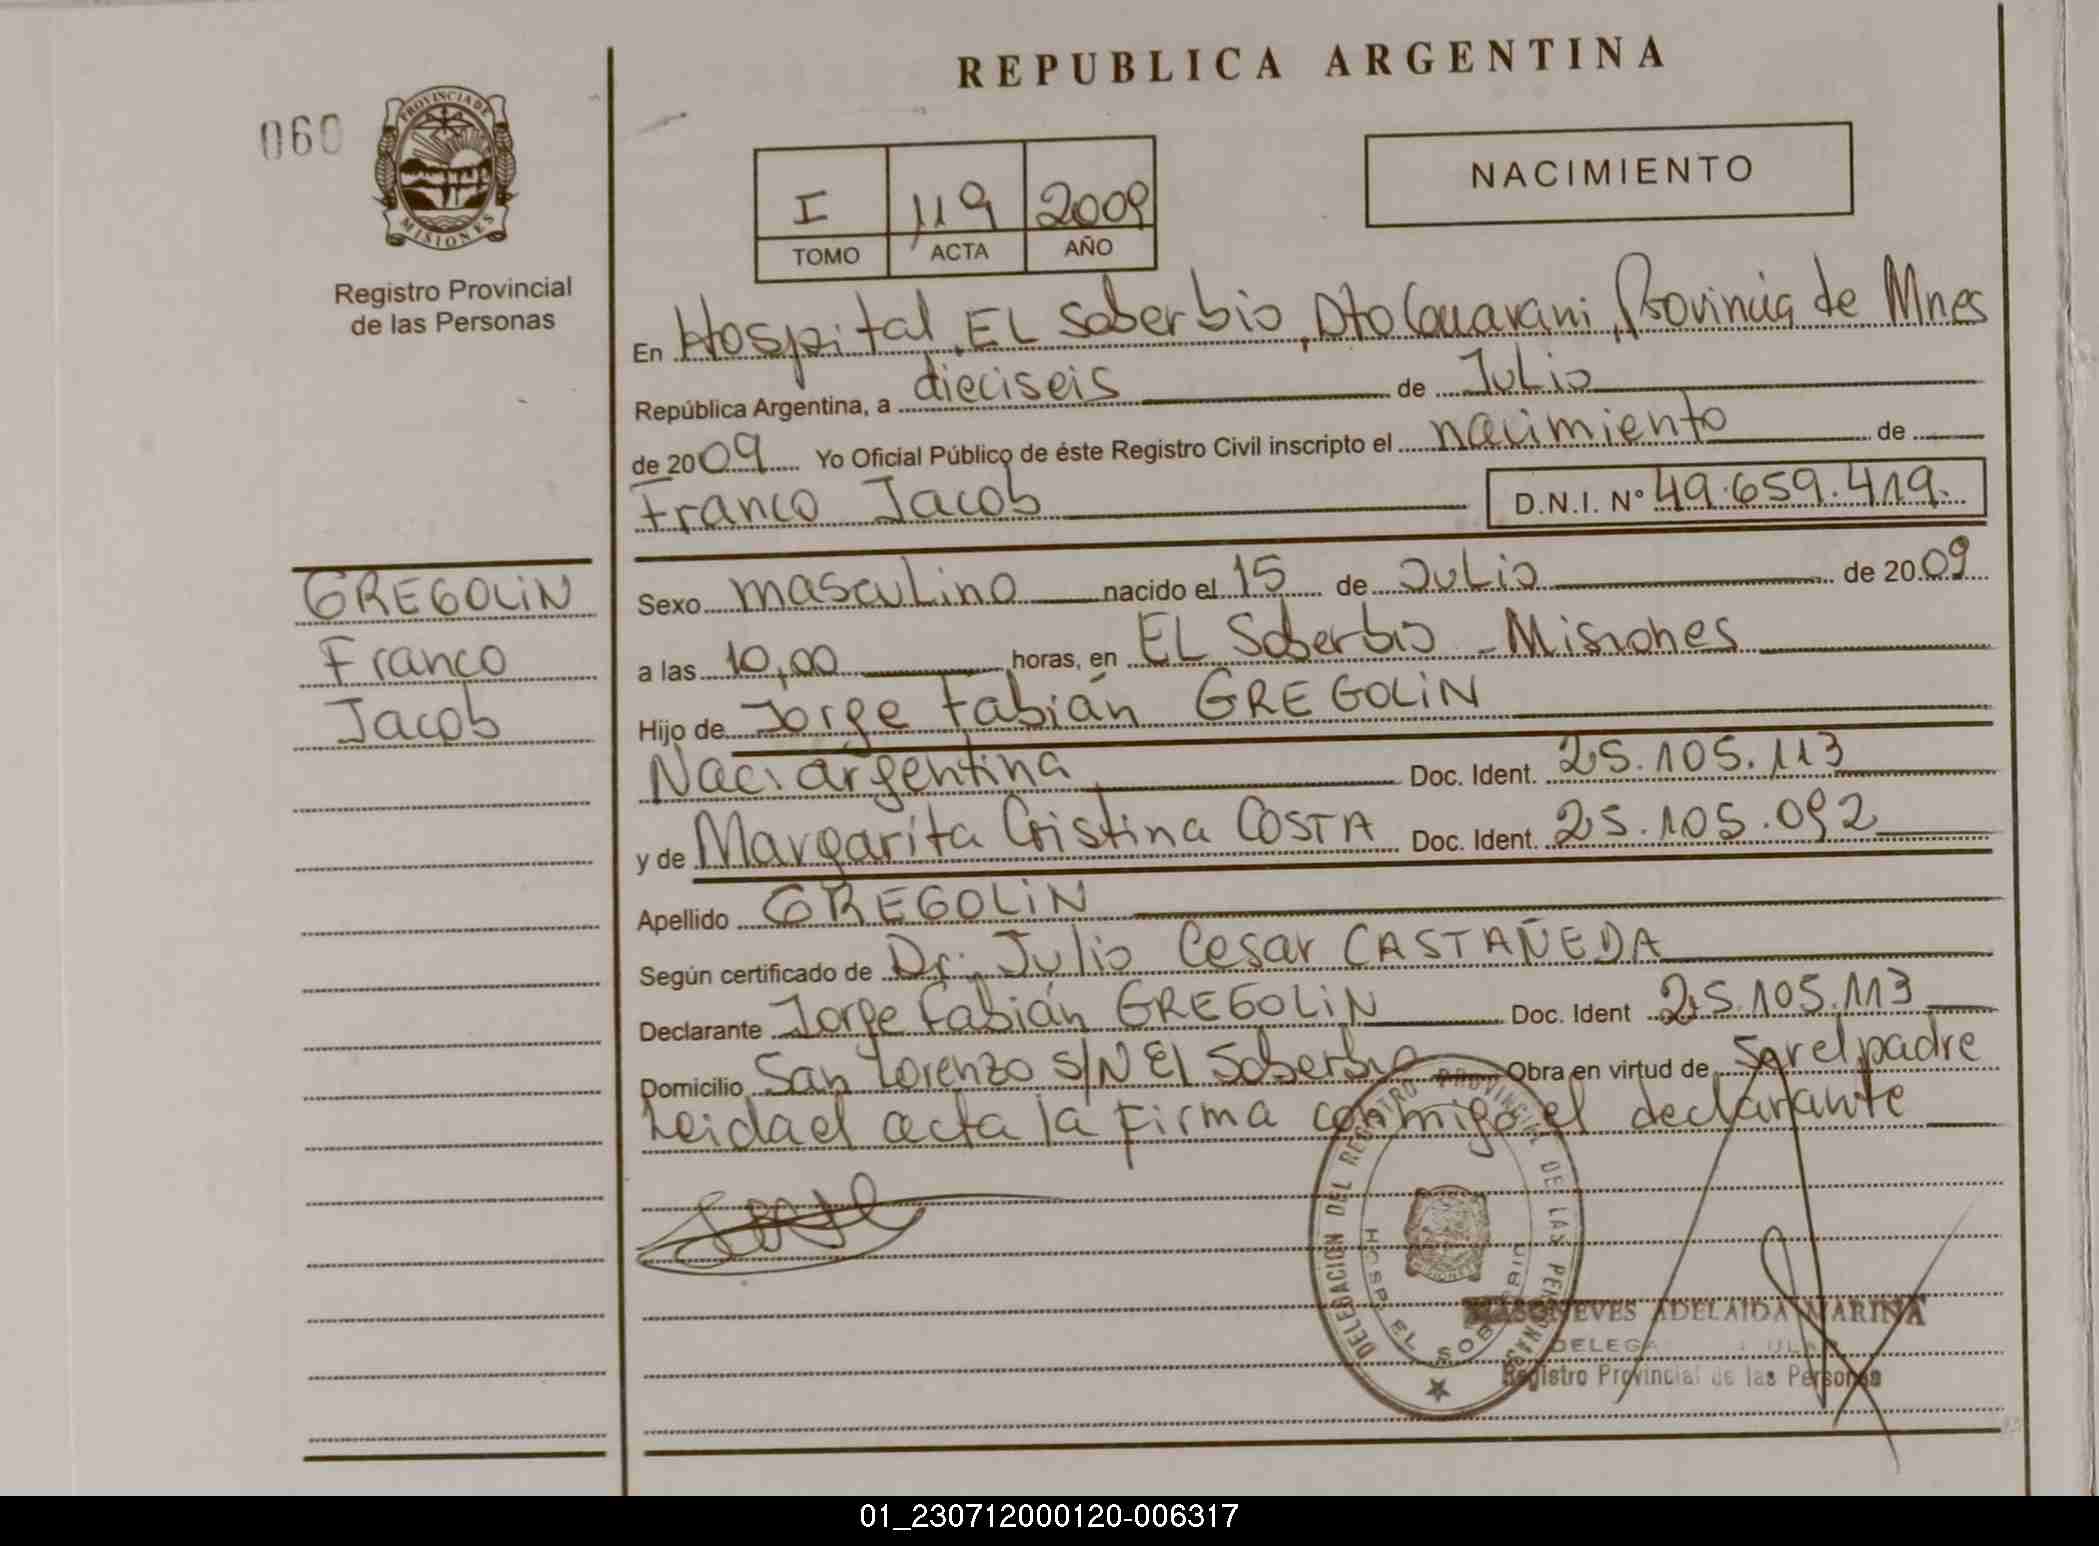 REPUBLICA ARGENTINA
060
PROVINCIA DE
MISIONES
Registro Provincial
de las Personas
NACIMIENTO
I 119 2009
TOMO ACTA AÑO
En Hospital, EL Soberbio, Dto Guarani, Provincia de Mnes
República Argentina, a dieciseis de Julio
de 2009 Yo Oficial Público de éste Registro Civil inscripto el nacimiento de
Franco Jacob D.N.I. Nº 49.659.419.
GREGOLIN
Franco
Jacob
Sexo masculino nacido el 15 de Julio de 2009
a las 10,00 horas, en EL Soberbio - Misiones
Hijo de Jorge Fabián GREGOLIN
Naci. argentina Doc. Ident. 25.105.113
y de Margarita Cristina COSTA Doc. Ident. 25.105.092
Apellido GREGOLIN
Según certificado de Dr. Julio Cesar CASTAÑEDA
Declarante Jorge Fabián GREGOLIN Doc. Ident 25.105.113
Domicilio San Lorenzo S/N El Soberbio Obra en virtud de Ser el padre
Leida el acta la firma conmigo el declarante
DELEGACION DEL REGISTRO PROVINCIAL DE LAS PERSONAS
HOSP. EL SOBERBIO
NEVES ADELAIDA MARINA
Registro Provincial de las Personas
01_230712000120-006317